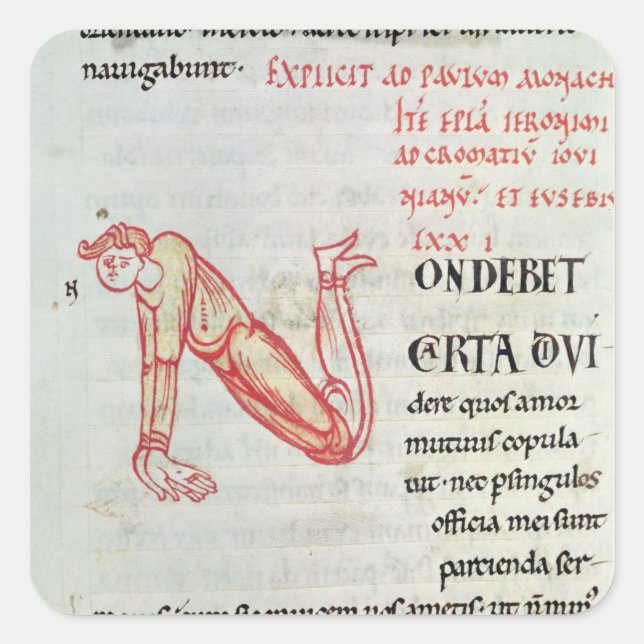 nauigabunt· EXPLICIT AD PAULUM MONACH
ITE EPLA IERONIMI
AD CROMATIU IOUI
NIANU· ET EUSEBIU
LXXI
N
ON DEBET
CARTA DIVI
dere quos amor
mutuus copula
uit· nec p singulos
officia mei sunt
partienda ser-